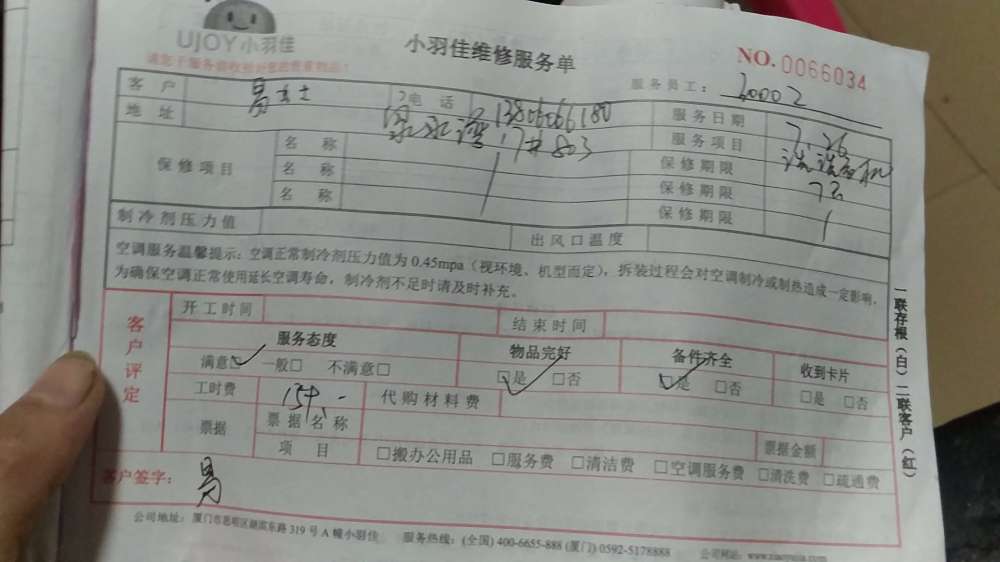 UJOY小羽佳
小羽佳维修服务单
NO. 0066034
服务员工：
客户 电话 服务日期 7.26
地址 17#803 服务项目
保修项目 名称 保修期限
名称 保修期限
名称 保修期限
制冷剂压力值 出风口温度
空调服务温馨提示：空调正常制冷剂压力值为 0.45mpa（视环境、机型而定），拆装过程会对空调制冷或制热造成一定影响，
为确保空调正常使用延长空调寿命，制冷剂不足时请及时补充。
客户评定
开工时间 结束时间
服务态度 物品完好 备件齐全 收到卡片
满意☑ 一般□ 不满意□ ☑是 □否 ☑是 □否 □是 □否
工时费 代购材料费
票据 票据名称 票据金额
项目 □搬办公用品 □服务费 □清洁费 □空调服务费 □清洗费 □疏通费
客户签字：
公司地址：厦门市思明区湖滨东路 319 号 A 幢小羽佳 服务热线：(全国) 400-6655-888 (厦门) 0592-5178888 公司网站：www.xiaoyujia.com
一联存根（白）二联客户（红）